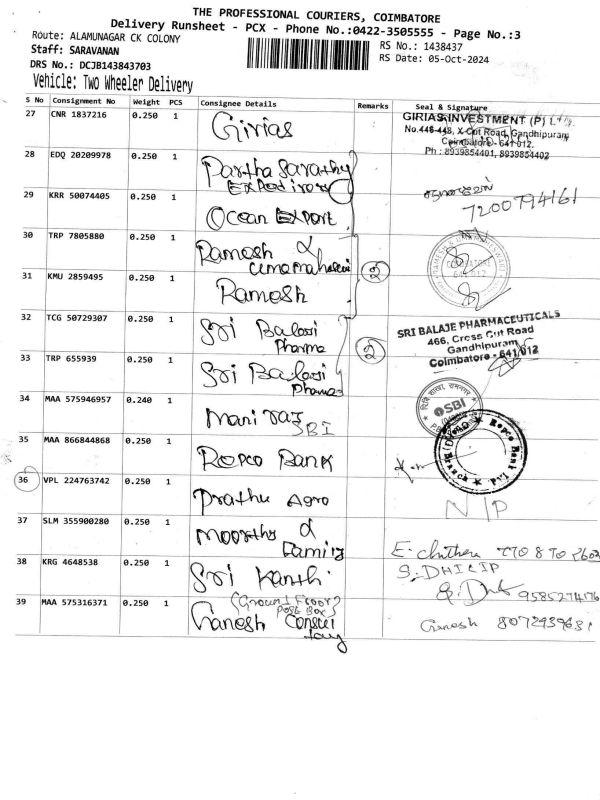 THE PROFESSIONAL COURIERS, COIMBATORE
Delivery Runsheet - PCX - Phone No.:0422-3505555 - Page No.:3
Route: ALAMUNAGAR CK COLONY
RS No.: 1438437
Staff: SARAVANAN
RS Date: 05-Oct-2024
DRS No.: DCJB143843703
Vehicle: Two Wheeler Delivery
S No Consignment No Weight PCS Consignee Details Remarks Seal & Signature
27 CNR 1837216 0.250 1 Girias
GIRIAS INVESTMENT (P) LTD.
No.446-448, X-Cut Road, Gandhipuram
Coimbatore - 641 012.
Ph : 8939854401, 8939854402
28 EDQ 20209978 0.250 1 Partha Sarathy
29 KRR 50074405 0.250 1 Ocean Export
7200794161
30 TRP 7805880 0.250 1 Ramesh &
2
31 KMU 2859495 0.250 1 Ramesh
32 TCG 50729307 0.250 1 Sri Balaji
Pharma
2
SRI BALAJE PHARMACEUTICALS
466, Cross Cut Road
Gandhipuram
Coimbatore - 641 012
33 TRP 655939 0.250 1 Sri Balaji
Pharma
34 MAA 575946957 0.240 1 Mani Raj
SBI
SBI
35 MAA 866844868 0.250 1 Repco Bank
Repco Bank
36 VPL 224763742 0.250 1 Prathu Agro
N/P
37 SLM 355900280 0.250 1 Moorthy &
Family
E.
38 KRG 4648538 0.250 1 Sri Kanth
S. DHILIP
9585274176
39 MAA 575316371 0.250 1 (Ground Floor)
Post Box)
Ganesh Consul
tay
Ganesh 8072939631